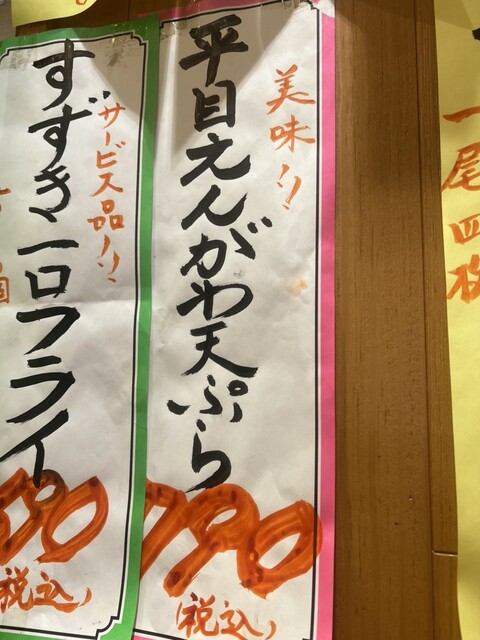 一尾四枚
美味!!
平目えんがわ天ぷら
790
(税込)
サービス品!!
すずき一口フライ
(税込)